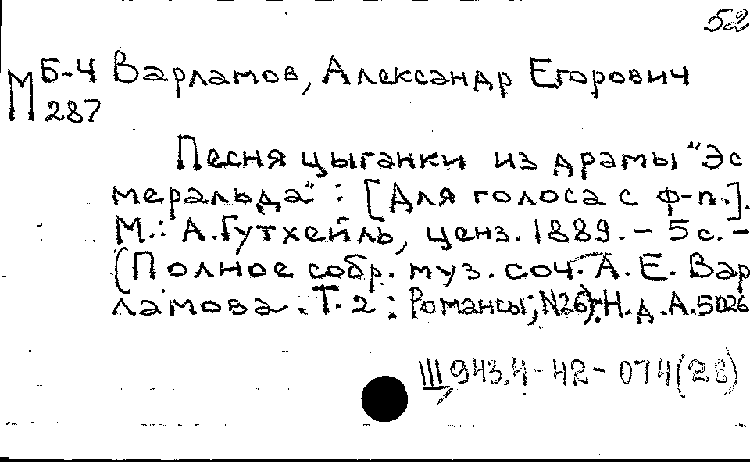 52
М Б-4 Варламов, Александр Егорович
287
Песня цыганки из драмы "Эс
меральда" : [Для голоса с ф-п.].
М.: А.Гутхейль, ценз. 1889. - 5 с. -
(Полное собр. муз. соч. А. Е. Вар
ламова. Т. 2 : Романсы; N26). Н.д. А.5026
III 943.4-42-074(28)